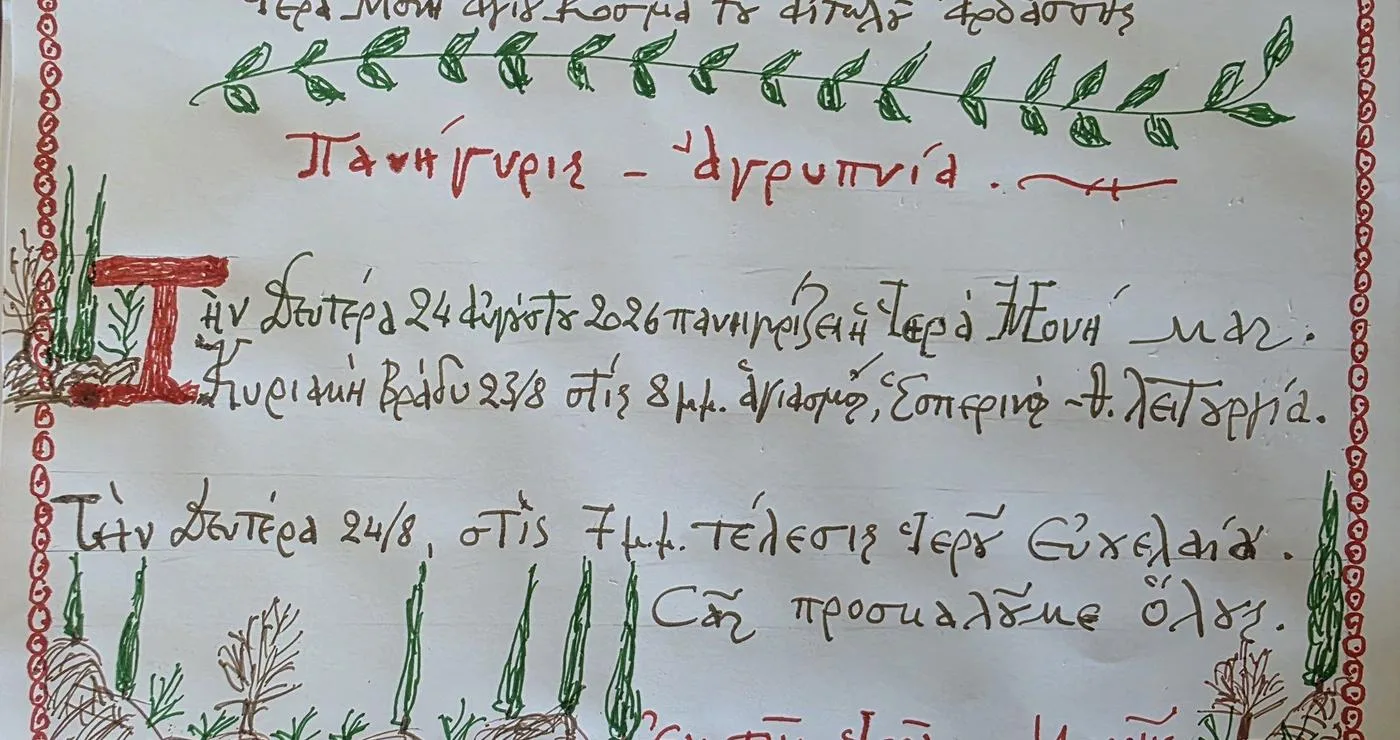 Ἱερά Μονή Ἁγίου Κοσμᾶ τοῦ Αἰτωλοῦ Ἀρδάσσης
Πανήγυρις - Ἀγρυπνία.
Τὴν Δευτέρα 24 Αὐγούστου 2026 πανηγυρίζει ἡ Ἱερὰ Μονή μας.
Κυριακή βράδυ 23/8 στίς 8 μμ. ἁγιασμός, Ἑσπερινός - Θ. λειτουργία.
Τὴν Δευτέρα 24/8, στὶς 7 μμ. τέλεσις Ἱεροῦ Εὐχελαίου.
Σᾶς προσκαλοῦμε ὅλους.